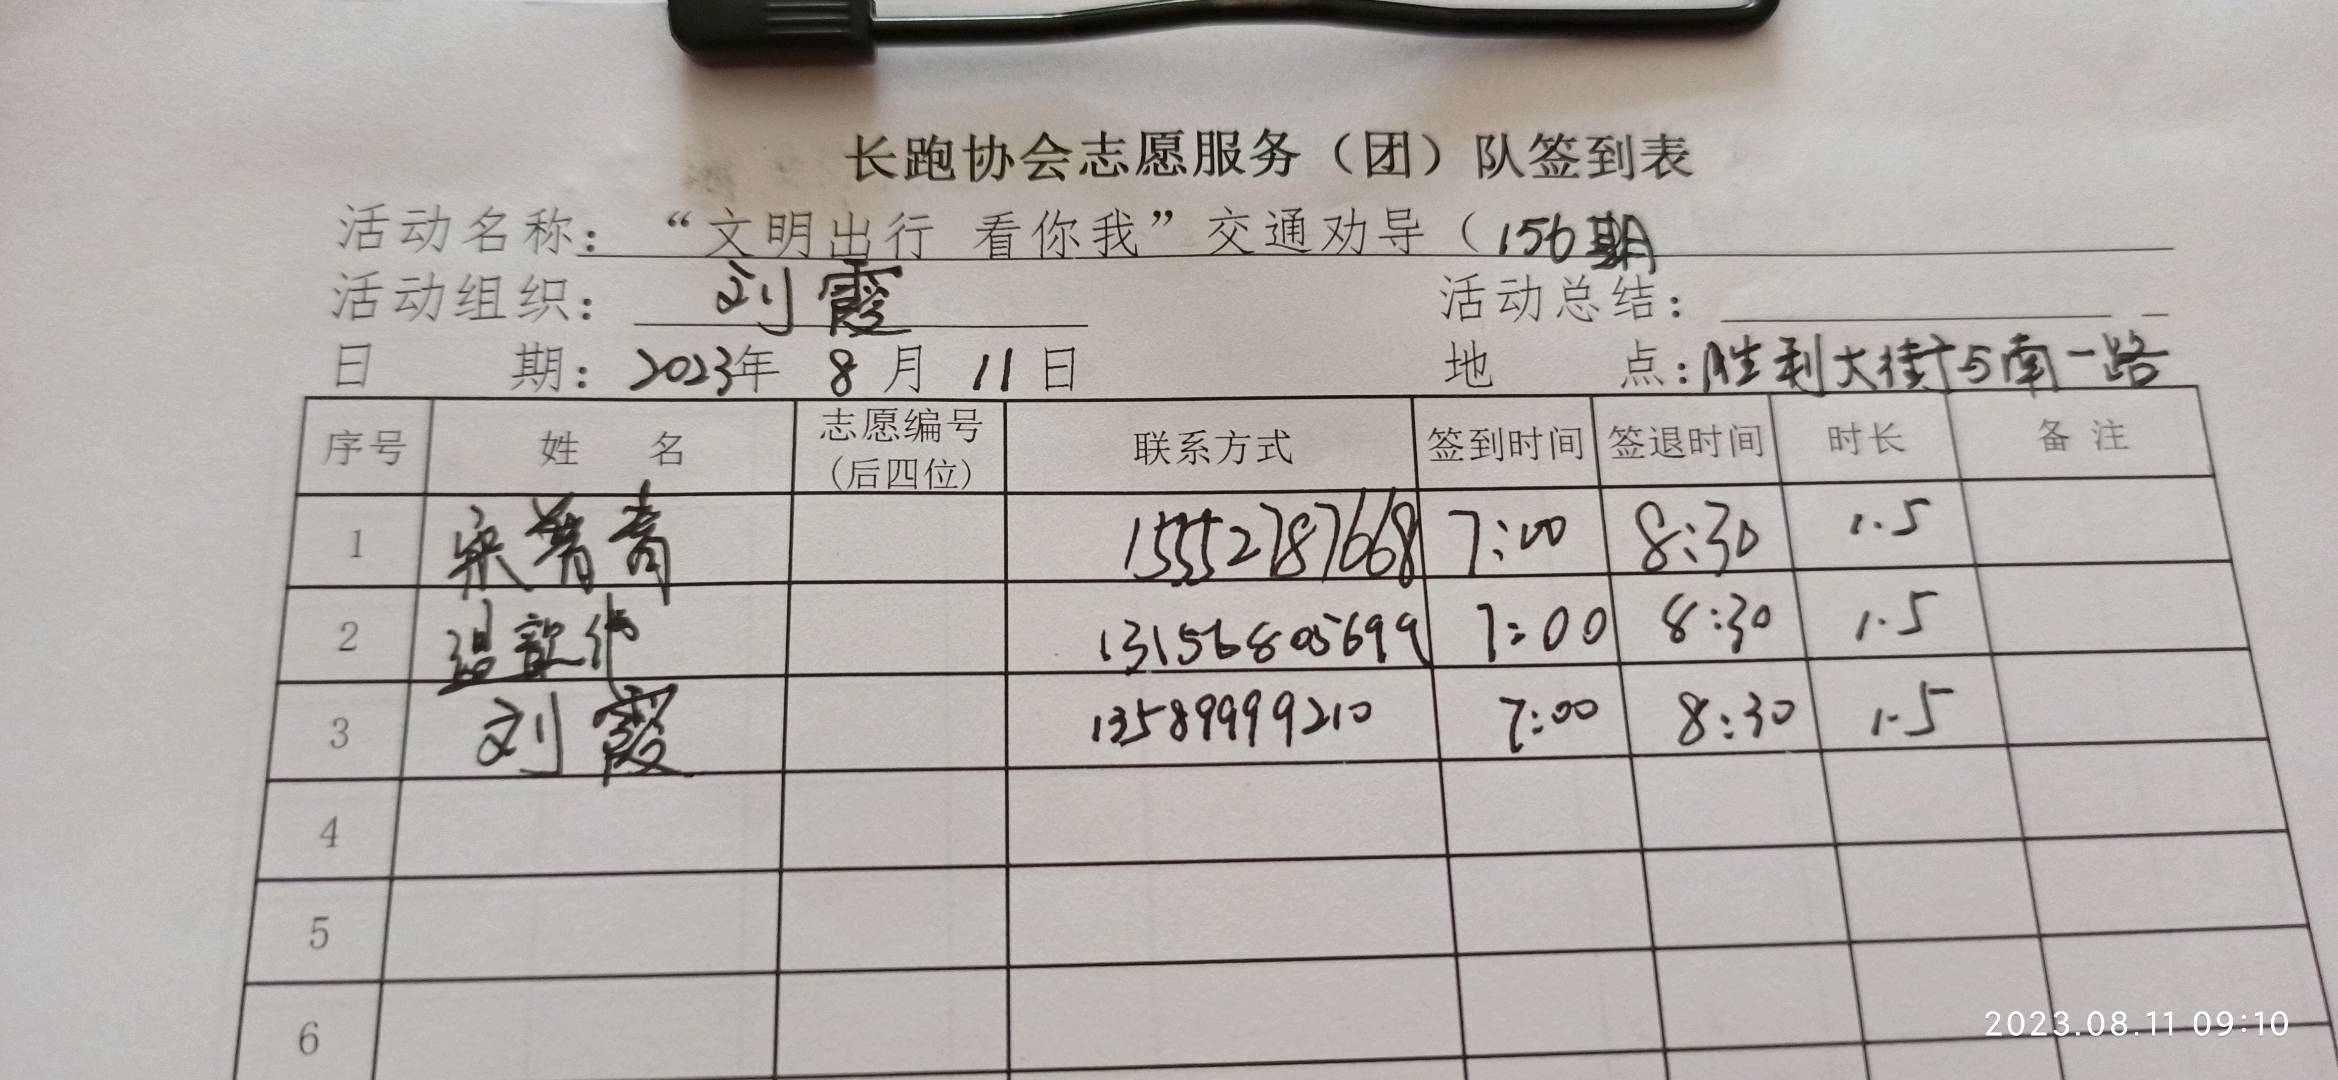 长跑协会志愿服务（团）队签到表
活动名称：“文明出行 看你我”交通劝导（156期
活动组织：刘霞 活动总结：
日 期：2023年 8 月 11 日 地 点：胜利大街与南一路
序号 姓 名 志愿编号（后四位） 联系方式 签到时间 签退时间 时长 备 注
1 宋 15552787668 7:00 8:30 1.5
2 温歆 13156805699 7:00 8:30 1.5
3 刘霞 13589999210 7:00 8:30 1.5
4
5
6
2023.08.11 09:10